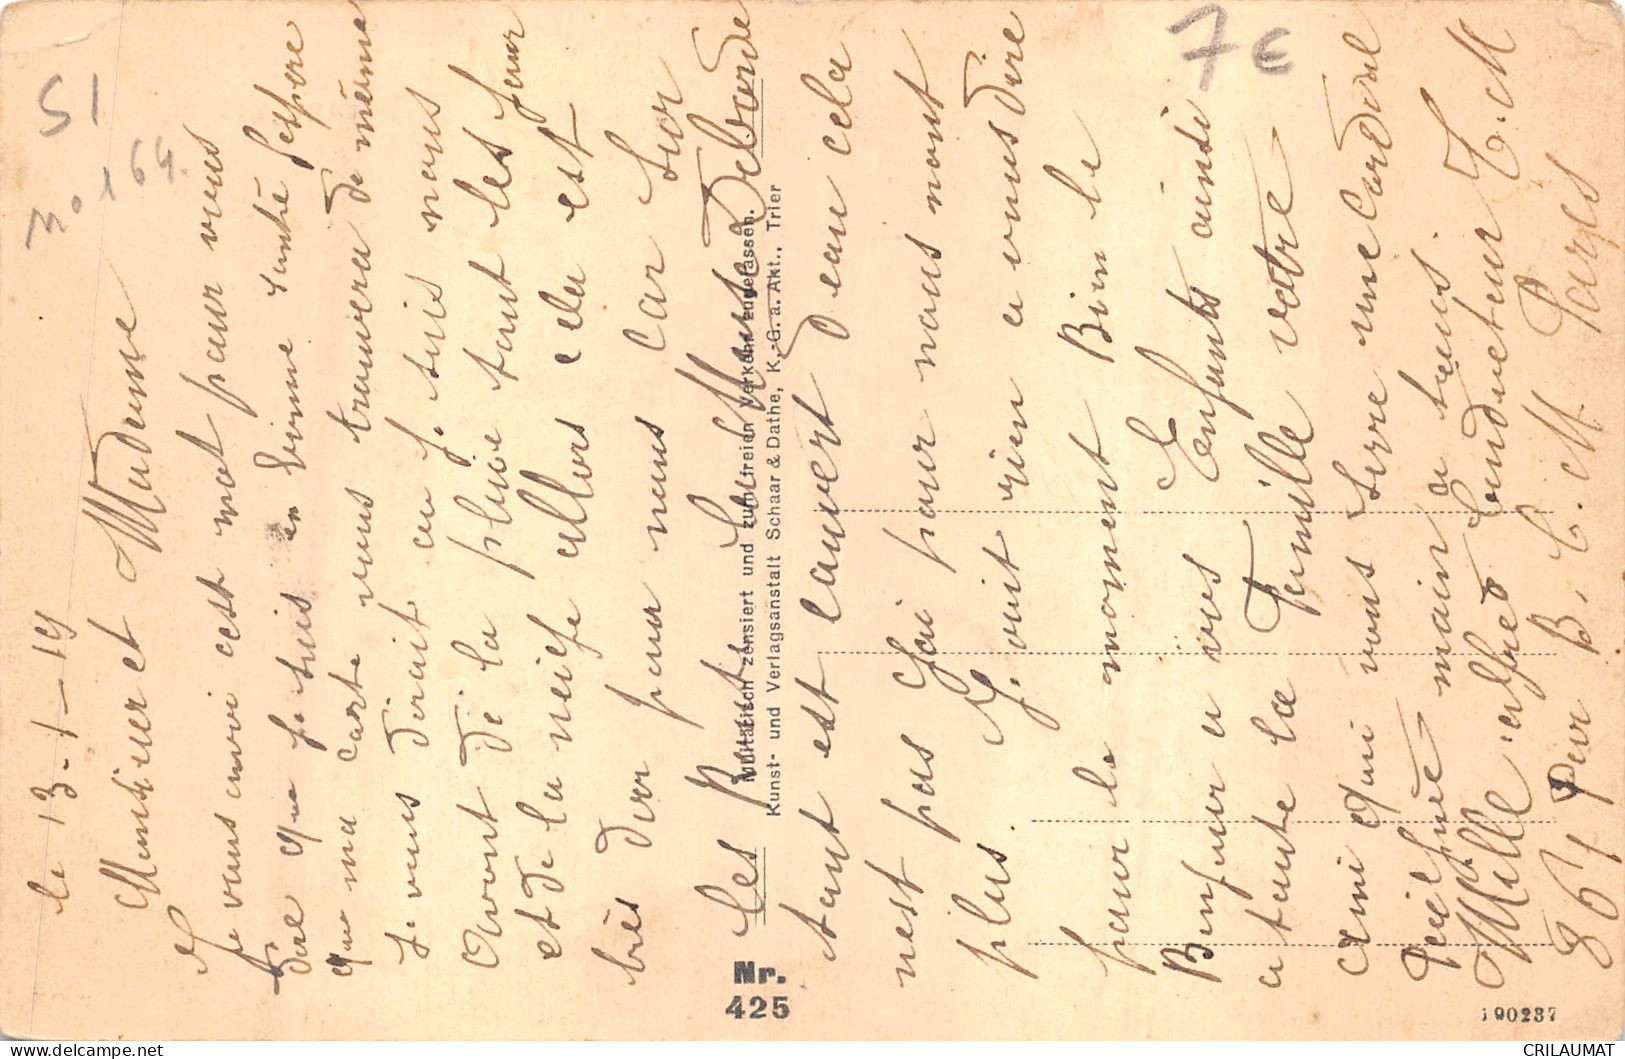 le 13-1-19
Monsieur et Madame
Je vous envoi cest mot pour vous
dire que je suis en bonne santé Jespere
que ma carte vous trouvera de même
Je vous dirait on J. suis nous
Avont de la pluie tout les Jour
et de la neige allors cela est
bès dur pour nous car sur
Les Route Deborde
tout est Couvert Deau cela
nest pas Gai pour nous nont
plus J. voit rien a vous dire
pour le moment Bien le
Bonjour a vous Enfants ainsi
a toute la Famille votre
ami qui vous serre une Cordial
main a tous.
Mille alfred Conducteur T.M
867 Par B.C.M. Paris
Nr.
425
Militärisch zensiert und zum freien Verkehr zugelassen.
Kunst- und Verlagsanstalt Schaar & Dathe, K.-G. a. Akt., Trier
190237
7 €
51
CRILAUMAT